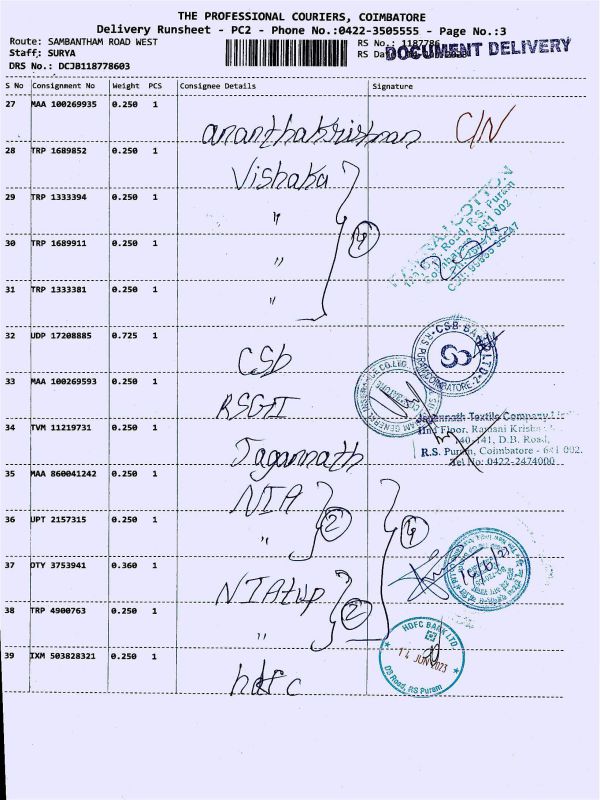 THE PROFESSIONAL COURIERS, COIMBATORE
Delivery Runsheet - PC2 - Phone No.:0422-3505555 - Page No.:3
Route: SAMBANTHAM ROAD WEST
RS No.: 1187786
Staff: SURYA
RS Da
DOCUMENT DELIVERY
DRS No.: DCJB118778603
S No Consignment No Weight PCS Consignee Details Signature
27 MAA 100269935 0.250 1
ananthakrishnan C/N
28 TRP 1689852 0.250 1
Vishaka
29 TRP 1333394 0.250 1
"
30 TRP 1689911 0.250 1
" 4
31 TRP 1333381 0.250 1
"
COTTON
Road, R.S. Puram
641 002
32 UDP 17208885 0.725 1
CSb
CSB BANK LTD
R.S PURAM COIMBATORE-2
33 MAA 100269593 0.250 1
RSGII
GENERAL INSURANCE CO.LTD.
34 TVM 11219731 0.250 1
Jagannath
Jagannath Textile Company
IInd Floor, Ramani Krishna
40-141, D.B. Road,
R.S. Puram, Coimbatore - 641 002.
Tel No: 0422-2474000
35 MAA 860041242 0.250 1
NIA
36 UPT 2157315 0.250 1
" 2 4
37 OTY 3753941 0.360 1
NIAtup
14/6/23
38 TRP 4900763 0.250 1
" 2
39 IXM 503828321 0.250 1
hdfc
HDFC BANK LTD
14 JUN 2023
DB Road, RS Puram